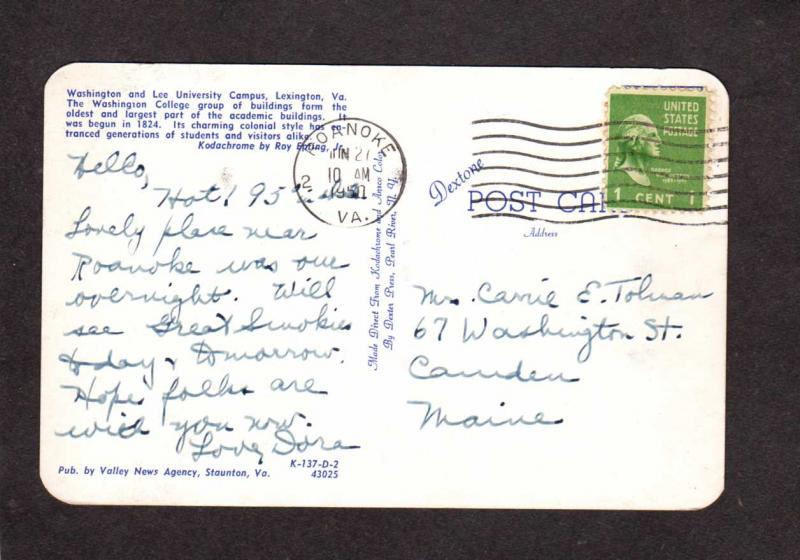 Washington and Lee University Campus, Lexington, Va.
The Washington College group of buildings form the
oldest and largest part of the academic buildings. It
was begun in 1824. Its charming colonial style has en-
tranced generations of students and visitors alike.
Kodachrome by Roy Epting, Jr.
Hello,
Hot! 95°
Lovely place near
Roanoke was our
overnight. Will
see Great Smokies
today & tomorrow.
Hope folks are
with you now.
Love, Dora
K-137-D-2
Pub. by Valley News Agency, Staunton, Va. 43025
Made Direct From Kodachrome and Ansco Color
By Dexter Press, Pearl River, N. Y.
ROANOKE
JUN 27
10 AM
2
VA.
Dextone
POST CARD
Address
UNITED
STATES
POSTAGE
1 CENT 1
Mrs. Carrie E. Tolman
67 Washington St.
Camden
Maine